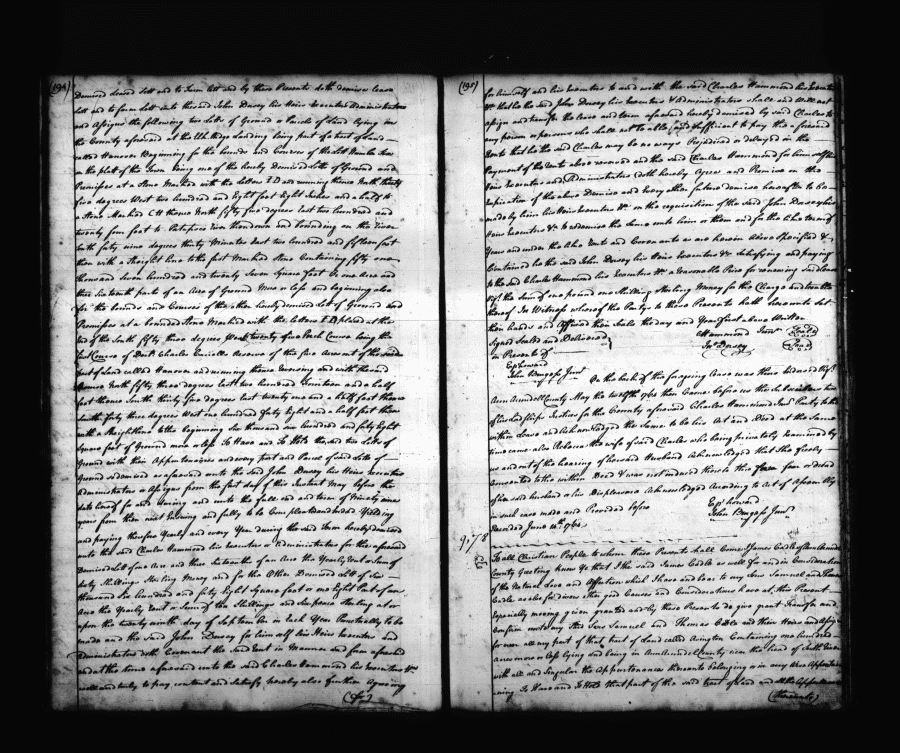 (194)
Demised leased Sett and to Farm lett and by these Presents doth demise lease
Sett and to farm Lett unto the said John Dorsey his Heirs Executors Administrators
and Assigns the following two Lotts of Ground or Parcels of Land lying in
the County aforesaid at the Elk Ridge Landing being part of a tract of Land
called Hanover Beginning for the bounds and Courses of the Lott Number
on the platt of the Town being one of the hereby Demised Lotts of Ground and
Premisses at a Stone Marked with the Letters I D and running thence North thirty
five degrees West two hundred and Eight feet Eight Inches and a half to
a Stone Marked C H thence North fifty five degrees East two hundred and
twenty four feet to Patapsco River then down and bounding on the River
South forty nine degrees thirty Minutes East two hundred and fifteen feet
then with a straight line to the first Marked Stone Containing fifty one
thousand Seven hundred and twenty Seven Square feet Or one Acre and
three Sixteenth parts of an Acre of Ground More or less and beginning also
for the bounds and Courses of the other hereby demised Lott of Ground and
Premisses at a bounded Stone Marked with the Letters I D placed at the
End of the South fifty three degrees West twenty four Perch Course being the
last Course of Doctr Charles Carrolls Reserve of the five Acres out of the
part of Land called Hanover and running thence reversing and with the said
Course North fifty three degrees East two hundred Nineteen and a half
feet thence South thirty five degrees East twenty one and a half feet thence
South forty three degrees West one hundred forty Eight and a half feet thence
with a straight line to the beginning Six thousand one hundred and forty Eight
Square feet of Ground more or less To Have and To Hold the said two Lotts of
Ground with their Appurtenances and every part and Parcel of said Lotts of
Ground so demised as aforesaid unto the said John Dorsey his Heirs Executors
Administrators or Assigns from the first day of this Instant May before the
date hereof for and during and unto the full end and term of Ninety nine
years from thence next Ensuing and fully to be Compleated and ended Yielding
and paying therefore Yearly and every Year during the said Term hereby demised
unto the said Charles Hammond his Executors or Administrators for the aforesaid
Demised Lott of one Acre and three Sixteenths of an Acre the Yearly Rent or Sum of
forty Shillings Sterling Money and for the Other Demised Lott of Six
thousand One hundred and forty Eight Square feet or one Eight Part of an
Acre the Yearly Rent or Sum of Shillings and Sixpence Sterling at or
upon the twenty ninth day of September in each Year Punctually to be
made and the said John Dorsey for himself his Heirs Executors and
Administrators doth Covenant the said Rent in Manner and form aforesaid
and at the times aforesaid unto the said Charles Hammond his Executors &c
well and truly to pay content and Satisfy hereby also further Agreeing
(for)
(195)
for himself and his Executors to and with the said Charles Hammond his Executors
&c that he the said John Dorsey his Executors & Administrators shall and will not
assign and transfer the lease and term aforesaid hereby demised by said Charles to
any person or persons who shall not be able and Sufficient to pay the aforesaid
Rents that he the said Charles may be no ways Prejudiced or delayed in the
Payment of the Rents above reserved and the said Charles Hammond for himself his
Heirs Executors and Administrators doth hereby Agree and Promise on the
Expiration of the above Demise and every other future demise hereafter to be
made by him his Heirs Executors &c on the requisition of the said John Dorsey his
Heirs Executors &c to redemise the same unto him or them and for the like term of
Years and under the like Rents and Covenants as are herein Above specified &
Contained he the said John Dorsey his Heirs Executors &c Satisfying and paying
to the said Charles Hammond his Executors &c a reasonable Price for renewing said Lease
Vizt the Sum of one pound one Shilling Sterling Money for the Charge and trouble
thereof In Witness whereof the Partys to these Presents hath hereunto Set
their hands and Affixed their Seals the day and Year first above Written
Signed Sealed and Delivered
C Hammond Junr (Seal)
in Presence of
Jno Dorsey (Seal)
Ep Howard
John Burgess Junr
On the back of the foregoing Lease was thus Endorsed Vizt
Ann Arundell County May the twelfth 1761 then Came before us the Subscribers two
of his Lordships Justices for the County aforesaid Charles Hammond Junr Party to the
within Lease and Acknowledged the same to be his Act and Deed at the Same
time came also Rebecca the wife of said Charles who being privately examined by
us and out of the hearing of her said Husband Acknowledged that She freely
consented to the within Deed & was not induced thereto thro fear or dread
of her said husband or his Displeasure Acknowledged According to Act of Assembly
in such case made and Provided before
Epm Howard
John Burgess Junr
Recorded June 12th 1761
To all Christian People to whom these Presents shall Come I James Cadle of Ann Arundel
County Greeting know Ye that I the said James Cadle as well for and in Consideration
of the Natural Love and Affection which I have and bear to my Sons Samuel and Thomas
Cadle as also for divers other good Causes and Considerations have at this Present
Especially moving given granted and by these Presents do give grant Transfer and
Confirm unto my This Sons Samuel and Thomas Cadle and their Heirs and Assigns
for ever all my part of that tract of Land called Arington Containing one hundred
Acres more or less lying and being in Ann Arundell County near the head of South River
with all and Singular the Appurtenances thereunto belonging or in any wise Appertaining
To Have and To Hold that part of the said tract of Land and all the Appurtenances
(thereunto)